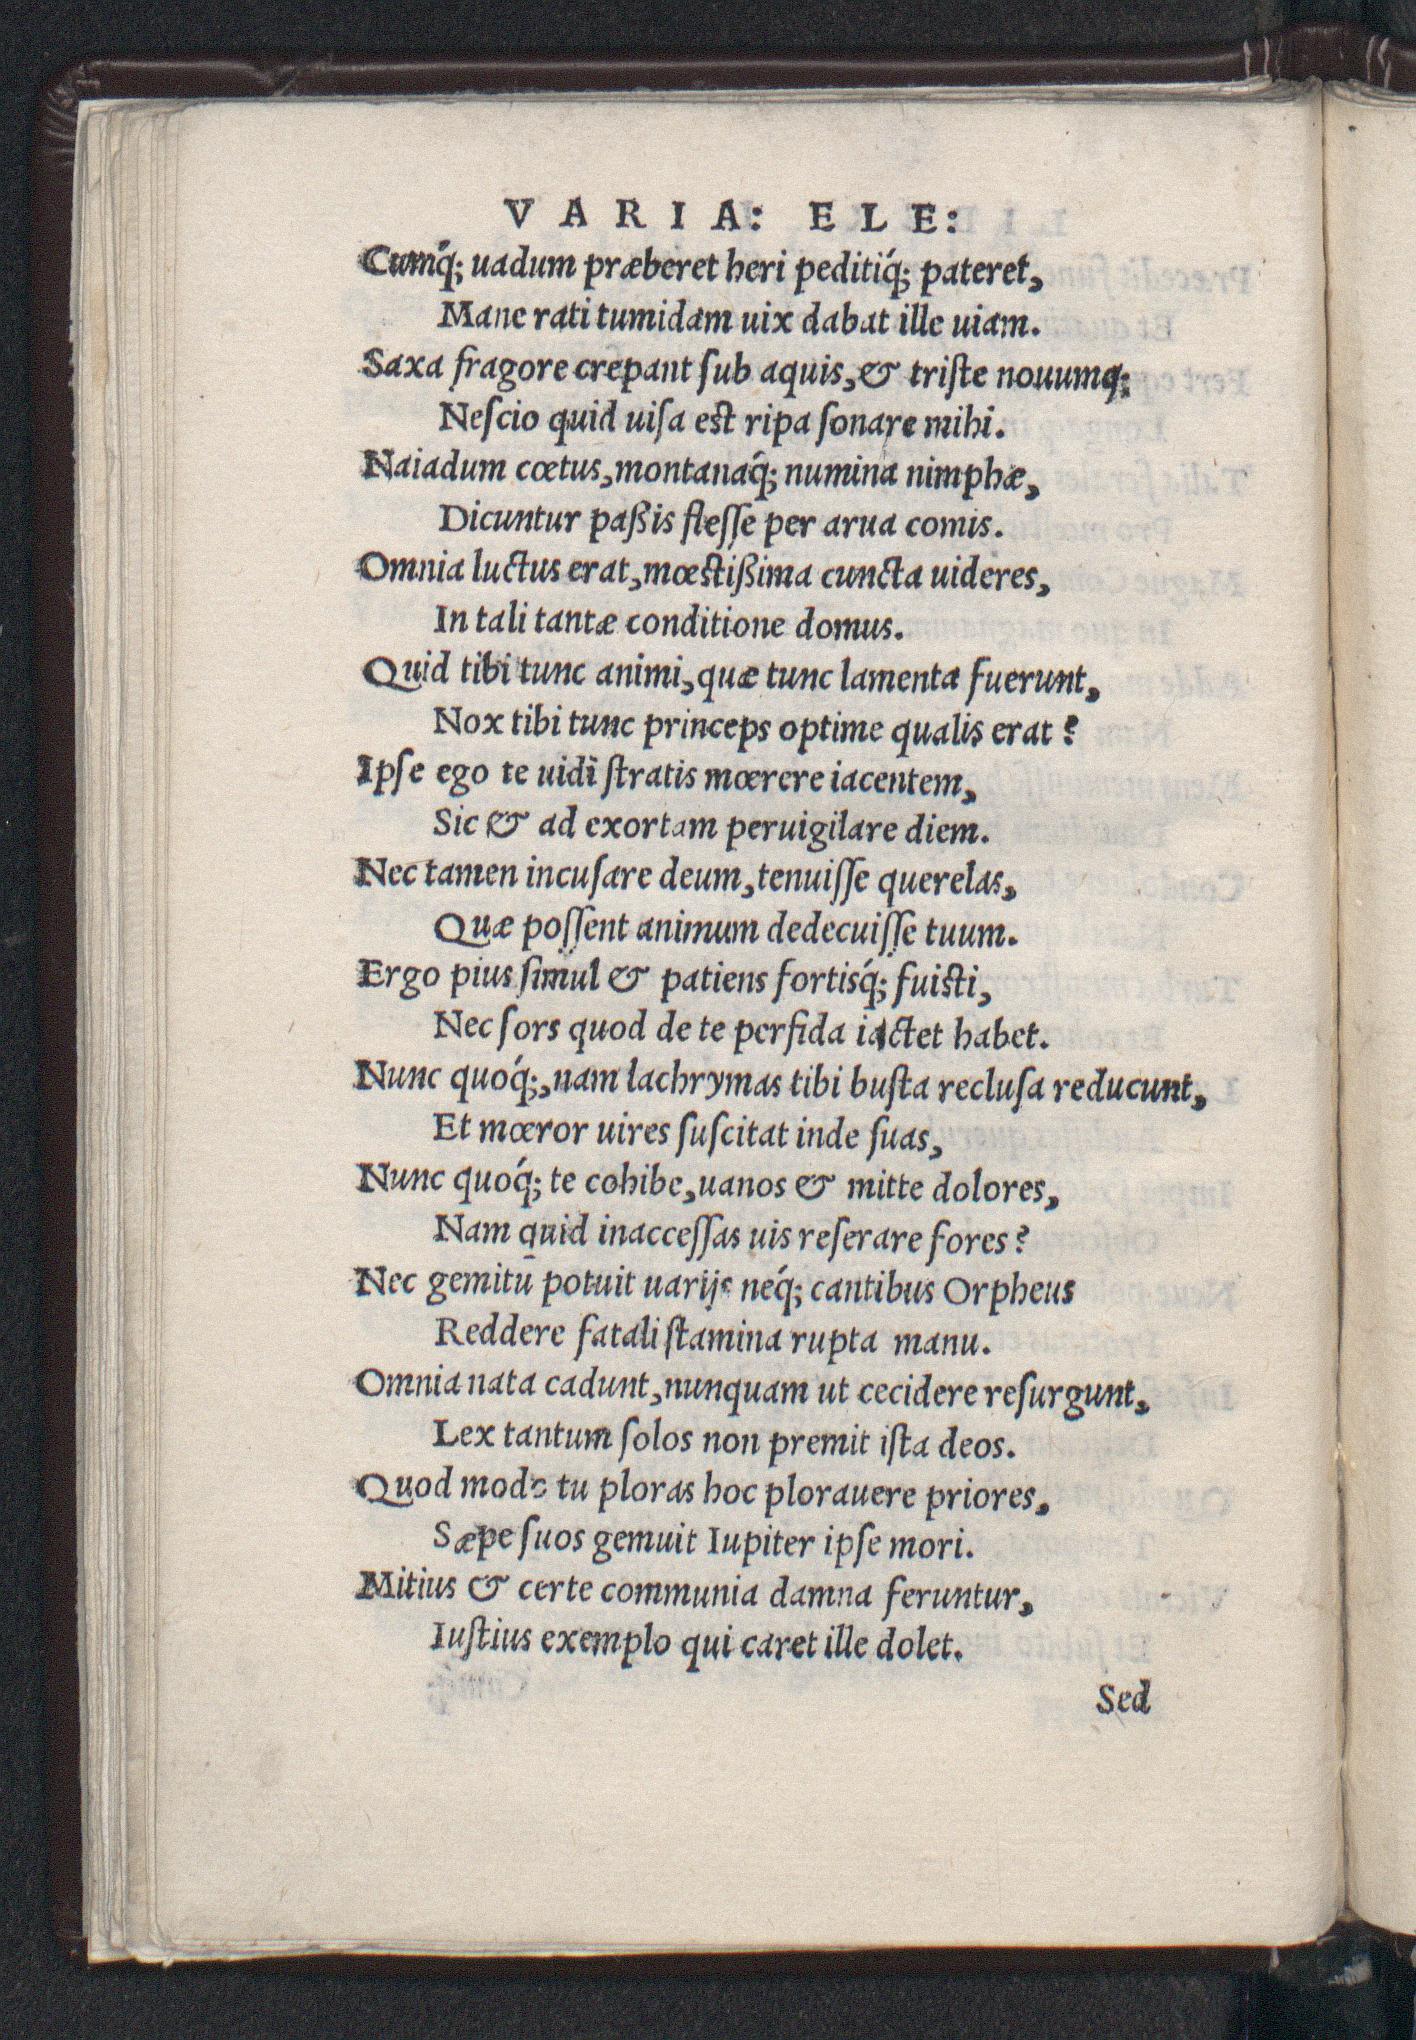 VARIA: ELE:
Cumq́; uadum præberet heri peditiq́; pateret,
Mane rati tumidam uix dabat ille uiam.
Saxa fragore crepant ſub aquis, & triſte nouumq;
Neſcio quid uiſa est ripa ſonare mihi.
Naiadum cœtus, montanaq́; numina nimphæ,
Dicuntur paßis fleſſe per arua comis.
Omnia luctus erat, mœstißima cuncta uideres,
In tali tantæ conditione domus.
Quid tibi tunc animi, quæ tunc lamenta fuerunt,
Nox tibi tunc princeps optime qualis erat?
Ipſe ego te uidi ſtratis mœrere iacentem,
Sic & ad exortam peruigilare diem.
Nec tamen incuſare deum, tenuiſſe querelas,
Quæ poſſent animum dedecuiſſe tuum.
Ergo pius ſimul & patiens fortisq́; fuisti,
Nec ſors quod de te perfida iactet habet.
Nunc quoq́;, nam lachrymas tibi buſta recluſa reducunt,
Et mœror uires ſuſcitat inde ſuas,
Nunc quoq́; te cohibe, uanos & mitte dolores,
Nam quid inacceſſas uis reſerare fores?
Nec gemitū potuit uarijs neq́; cantibus Orpheus
Reddere fatali ſtamina rupta manu.
Omnia nata cadunt, nunquam ut cecidere reſurgunt,
Lex tantum ſolos non premit iſta deos.
Quod modo tu ploras hoc plorauere priores,
Sæpe ſuos gemuit Iupiter ipſe mori.
Mitius & certe communia damna feruntur,
Iuſtius exemplo qui caret ille dolet.
Sed